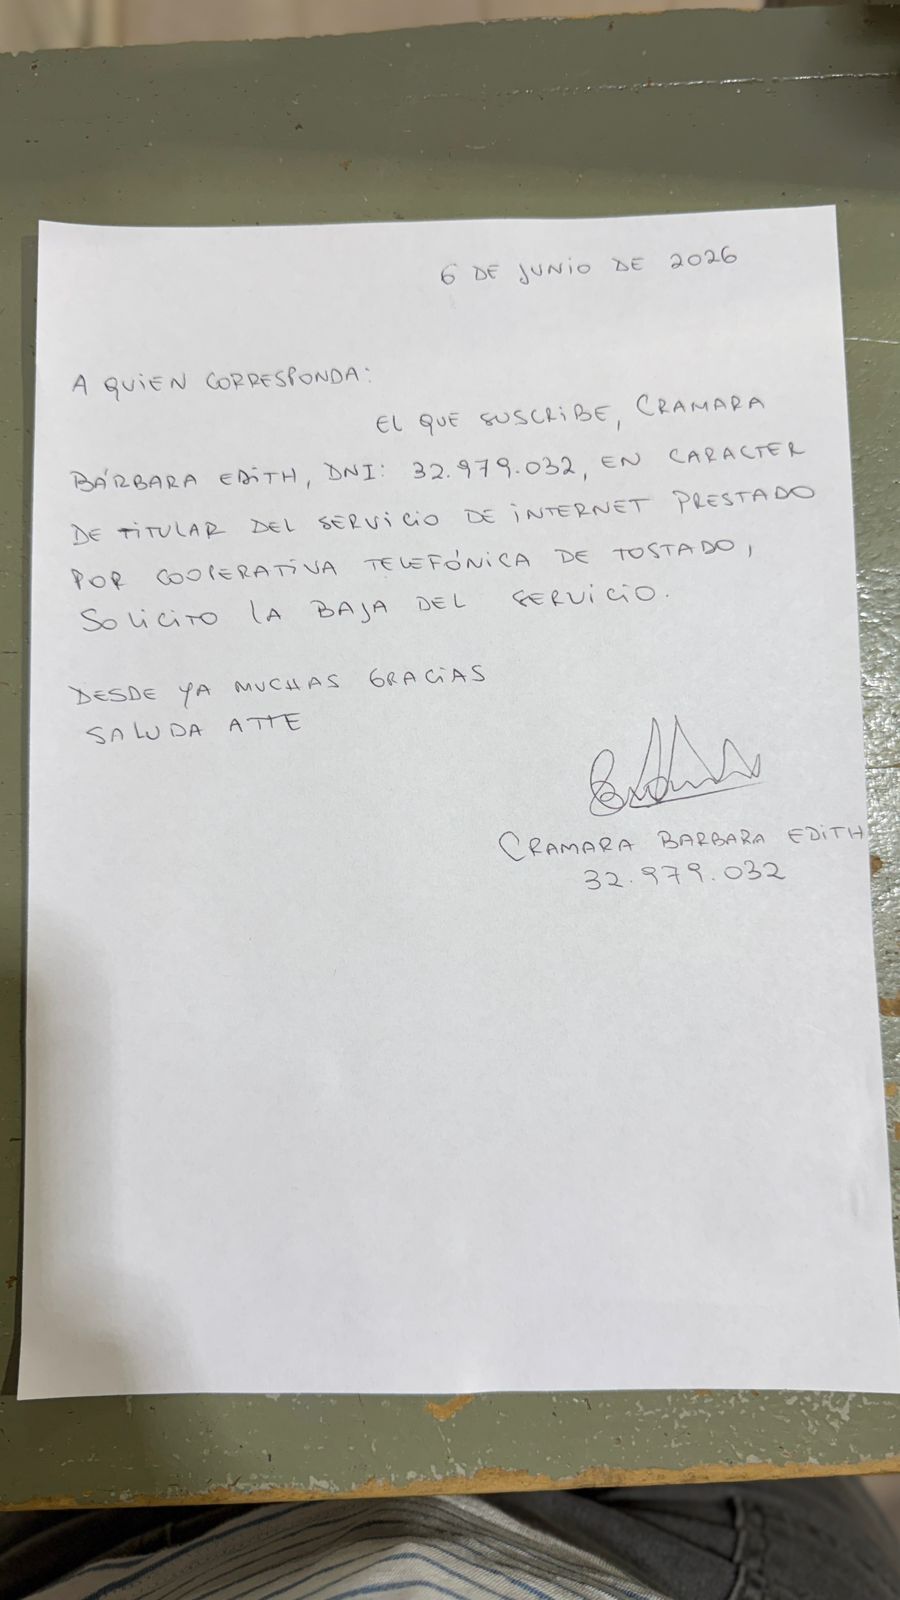 6 DE JUNIO DE 2026
A QUIEN CORRESPONDA:
EL QUE SUSCRIBE, CRAMARA
BÁRBARA EDITH, DNI: 32.979.032, EN CARACTER
DE TITULAR DEL SERVICIO DE INTERNET PRESTADO
POR COOPERATIVA TELEFÓNICA DE TOSTADO,
SOLICITO LA BAJA DEL SERVICIO.
DESDE YA MUCHAS GRACIAS
SALUDA ATTE
CRAMARA BARBARA EDITH
32.979.032